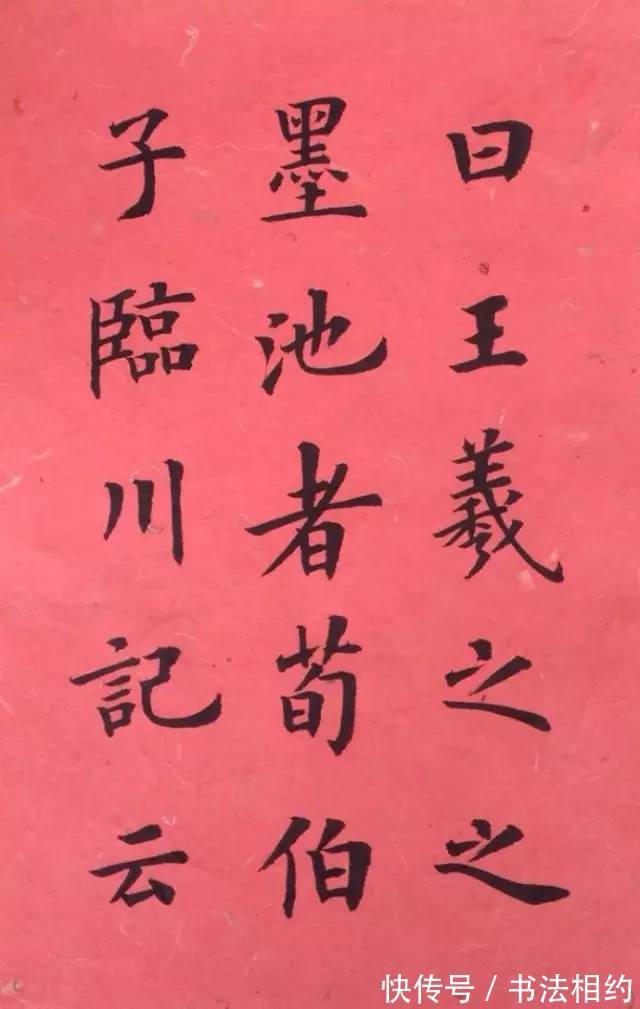 曰王羲之之
墨池者荀伯
子臨川記云
快传号/书法相约